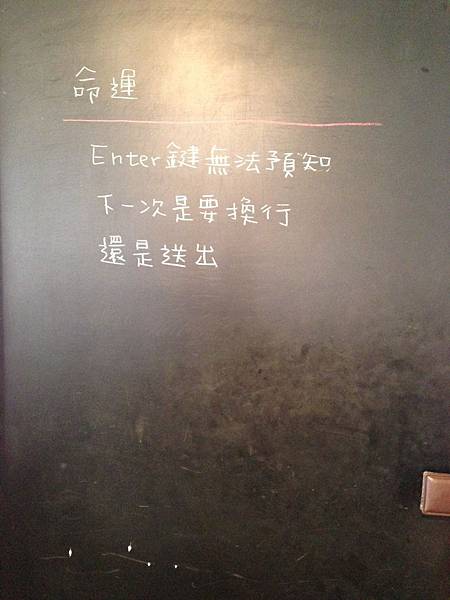 命運
Enter鍵無法預知
下一次是要換行
還是送出